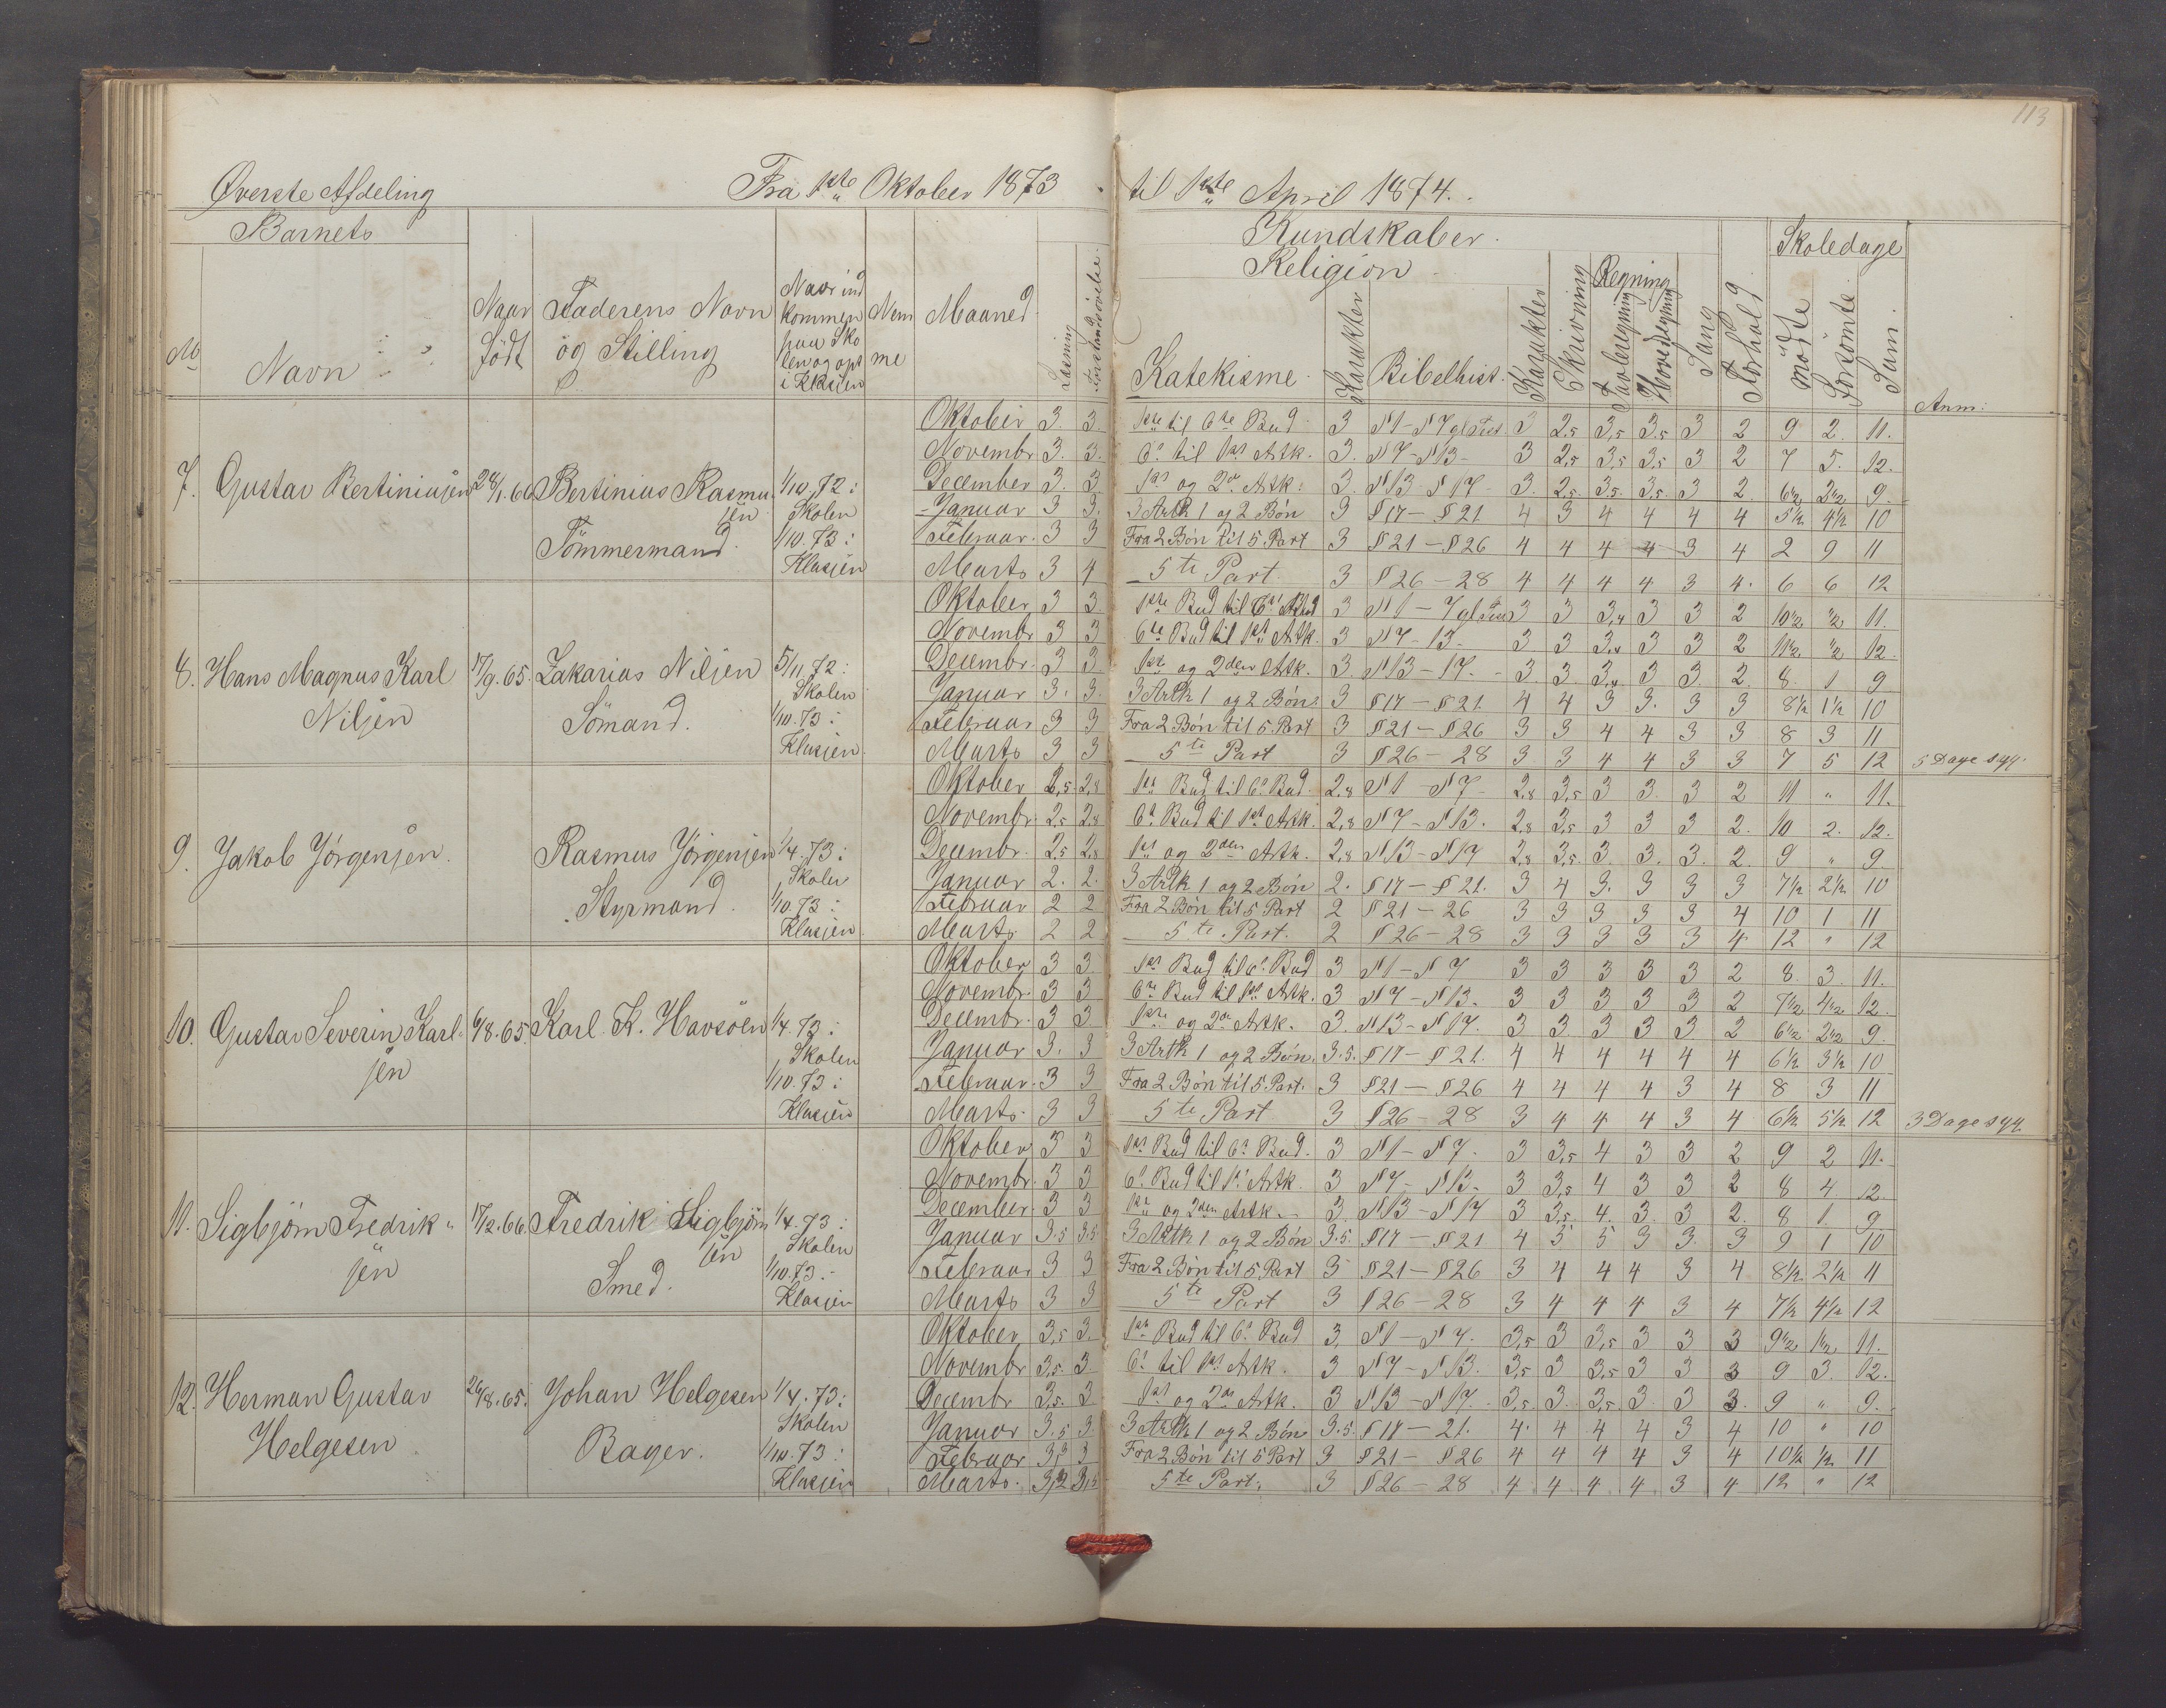 113
Øverste Afdeling Fra 1ste Oktober 1873 til 1ste April 1874.
Barnets Kundskaber. Skoledage
Religion Regning
No Navn Naar Födt Faderens Navn og Stilling Naar ind kommen paa Sko len og opt i Klassen Nem me Maaned Læsning Forstandsövelse Katekisme Karakter Bibelhist. Karakter Skrivning Tavleregning Hovedregning Sang Forhold Mödte Forsömte Sum. Anm:
7. Gustav Bertiniusen 28/1.66 Bertinius Rasmussen Tömmermand. 1/10.72: Skolen 1/10.73: Klassen
Oktober 3. 3. 1ste til 6te Bud 3 § 1 - § 7 3 2,5 3,5 3,5 3 2 9 2. 11.
Novembr 3. 3. 6. til 1ste Artk. 3. § 7 - § 13 - 3 2,5 3,5 3,5 3 2 7 5. 12.
December 3. 3 1ste og 2den Artk: 3. § 13 - § 17 - 3. 2,5. 3,5. 3,5. 3 2. 6 1/2 2 1/2 9.
Januar 3 3. 3 Artk 1 og 2 Bön 3 § 17 — § 21 4 3 4 4 4 4 5 1/2 4 1/2 10
Februar. 3 3 Fra 2 Bön til 5. Part 3 § 21 — § 26 4 4 4 4 3 4 2 9 11
Marts 3 4 5te Part 3 § 26 — 28 4 4 4 4 3 4. 6 6 12
8. Hans Magnus Karl Nilsen 17/9.65. Zakarias Nilsen Sömand. 5/11.72: Skolen 1/10.73: Klassen.
Oktober 3 3. 1ste Bud til 6te Bud 3 § 1 — 7 3 3 3,4 3 3 2 10 1/2 1/2 11.
Novembr 3 3 6te Bud til 1ste Artk. 3 § 7 - 13 - 3 3 3,4 3 3 2 11 1/2 1/2 12.
Decembr. 3 3 1ste og 2den Artk. 3. § 13 - 17. - 3 3. 3,4. 3 3. 2. 8. 1 9
Januar 3. 3. 3 Artk 1 og 2 Bön. 3 § 17 — § 21. 4 4 3 3. 3 3 8 1/2 1 1/2 10
Februar 3 3 Fra 2 Bön til 5. Part 3 § 21 — § 26 3 3 4 4 3 3 8 3 11
Marts 3 3 5te Part 3 § 26 — 28 3 3 4 4 3 3 7 5 12 5 Dage syg.
9. Jakob Jörgensen. Rasmus Jörgensen Styrmand. 1/4.73: Skolen 1/10.73: Klassen.
Oktober 2,5. 2,8 1ste Bud til 6. Bud. 2,8 § 1 - § 7 - 2,8 3,5 3 3. 3 2 11 " 11.
Novembr. 2,5 2,8 6te Bud til 1ste Artk. 2,8 § 7 - § 13. 2,8 3,5 3 3 3 2. 10 2. 12.
Decembr. 2,5 2,8 1ste og 2den Artk. 2,8 § 13 - § 17 2,8 3,5 3. 3. 3. 2. 9 " 9
Januar 2. 2. 3 Artk 1 og 2 Bön 2. § 17 — § 21. 3 4 3. 3 3 3 7 1/2 2 1/2 10
Februar 2 2 Fra 2 Bön til 5 Part 2 § 21 — 26 3 3 3 3 3 4 10 1 11
Marts 2 2 5te Part. 2 § 26 — 28 3 3 3 3 3 4 12 " 12
10. Gustav Severin Karlsen 6/8.65. Karl. K. Havsöen 1/4.73: Skolen 1/10.73: Klassen
Oktober 3 3. 1ste Bud til 6. Bud 3 § 1 - § 7 3 3 3 3 3 2 8 3. 11.
Novembr. 3 3 6te Bud til 1ste Artk. 3 § 7 - § 13. 3 3 3 3 3 2 7 1/2 4 1/2 12.
Decembr. 3 3 1ste og 2den Artk. 3. § 13 - § 17. 3 3. 3 3 3 2 6 1/2 2 1/2 9.
Januar 3. 3 3 Artk 1 og 2 Bön. 3.5. § 17 — § 21. 4 4 4 4 4 4 6 1/2 3 1/2 10
Februar. 3 3 Fra 2 Bön til 5. Part. 3 § 21 — § 26 4 4 4 4 3 4 8 3 11
Marts. 3 3 5te Part 3 § 26 — 28 3 4 4 4 3 4 6 1/2 5 1/2 12 3 Dage syg.
11. Sigbjörn Fredriksen 17/12.66. Fredrik Sigbjörnsen Smed. 1/4.73: Skolen 1/10.73: Klassen
Oktober 3 3 1ste Bud til 6te Bud. 3 § 1 - § 7. 3 3,5 4 3 3 2 9 2 11.
Novembr. 3 3 6te Bud til 1ste Artk. 3 § 7 - § 13 - 3 3,5 4 3 3 2 8 4 12
December. 3 3 1ste og 2den Artk. - 3. § 13 - § 17 3 3,5. 4. 3. 3 2. 8 1. 9
Januar 3.5 3.5 3 Artk 1 og 2 Bön 3.5. § 17 — § 21 4 5 5 3 3. 3 9 1 10
Februar 3 3 Fra 2 Bön til 5 Part 3 § 21 — § 26 3 4 4 4 3 4. 8 1/2 2 1/2 11
Marts 3 3 5te Part 3 § 26 — 28 3 4 4 4 3 4 7 1/2 4 1/2 12
12. Herman Gustav Helgesen 26/8.65. Johan Helgesen Bager. 1/4.73: Skolen 1/10.73: Klassen
Oktober 3,5 3. 1ste Bud til 6te Bud 3. § 1 — § 7. 3,5 3 3,5 3 3 3 9 1/2 1 1/2 11.
Novembr 3,5. 3 6te til 1ste Artk. 3 § 7 - § 13. 3,5 3 3,5 3 3 3 9 3. 12.
Decembr 3,5. 3 1ste og 2den Artk. 3 § 13 - § 17. 3,5. 3. 3,5. 3. 3 3. 9 " 9.
Januar 3.5 3. 3 Artk 1 og 2 Bön 3.5. § 17 — 21. 4. 4 4 4 3 4 10 " 10
Februar 3 Fra 2 Bön til 5 Part 3 § 21 — § 26 4 4 4 4 3 4 10 1/2 1/2 11
Marts. 5te Part. 3 § 26 — 28 4 4 4 4 3 4 12 " 12